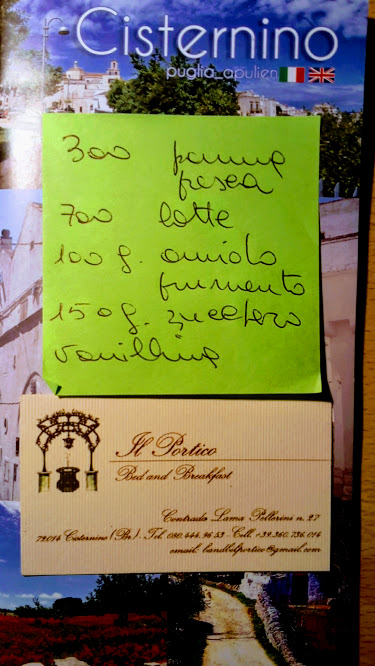 Cisternino
puglia_apulien
300 panna
fresca
700 latte
100 g. amido
frumento
150 g. zucchero
vanillina
Il Portico
Bed and Breakfast
Contrada Lama Pellerini n. 27
72014 Cisternino (Br) - Tel. 080.444.96.53 - Cell. +39.360.736.014
email: bandbilportico@gmail.com